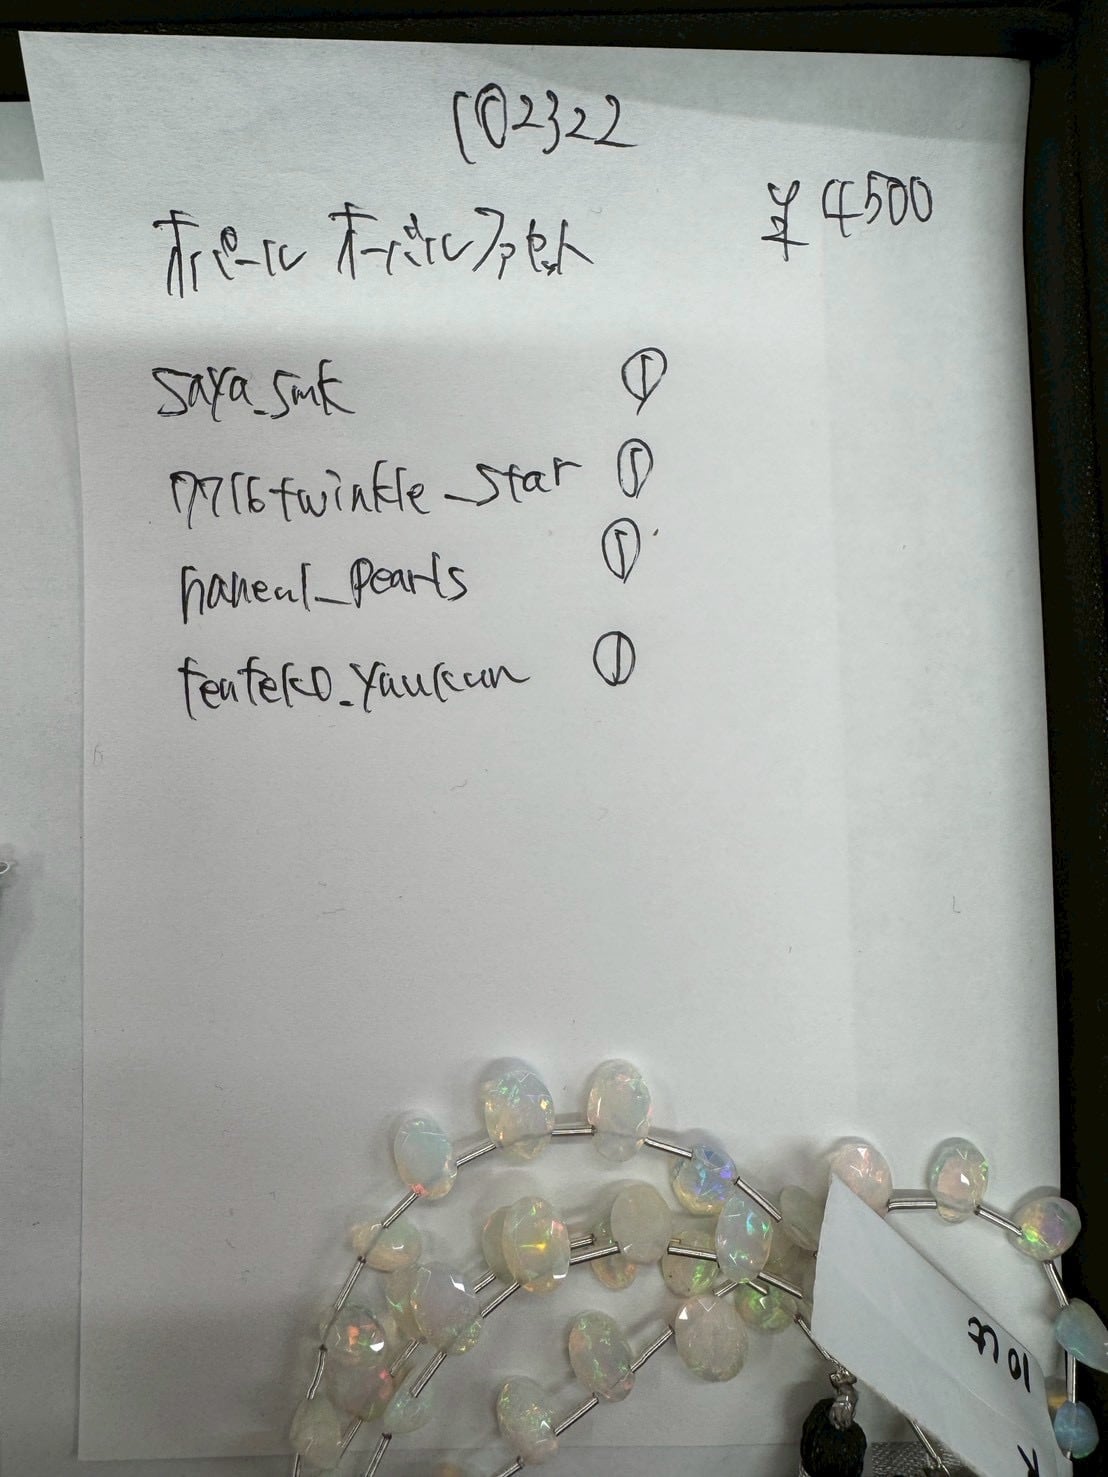 102322
¥4500
オパール オーバルファセット
saya_smk ①
7716twinkle_star ①
haneul_pearls ①
tenteko_yaukun ①
10ct
K